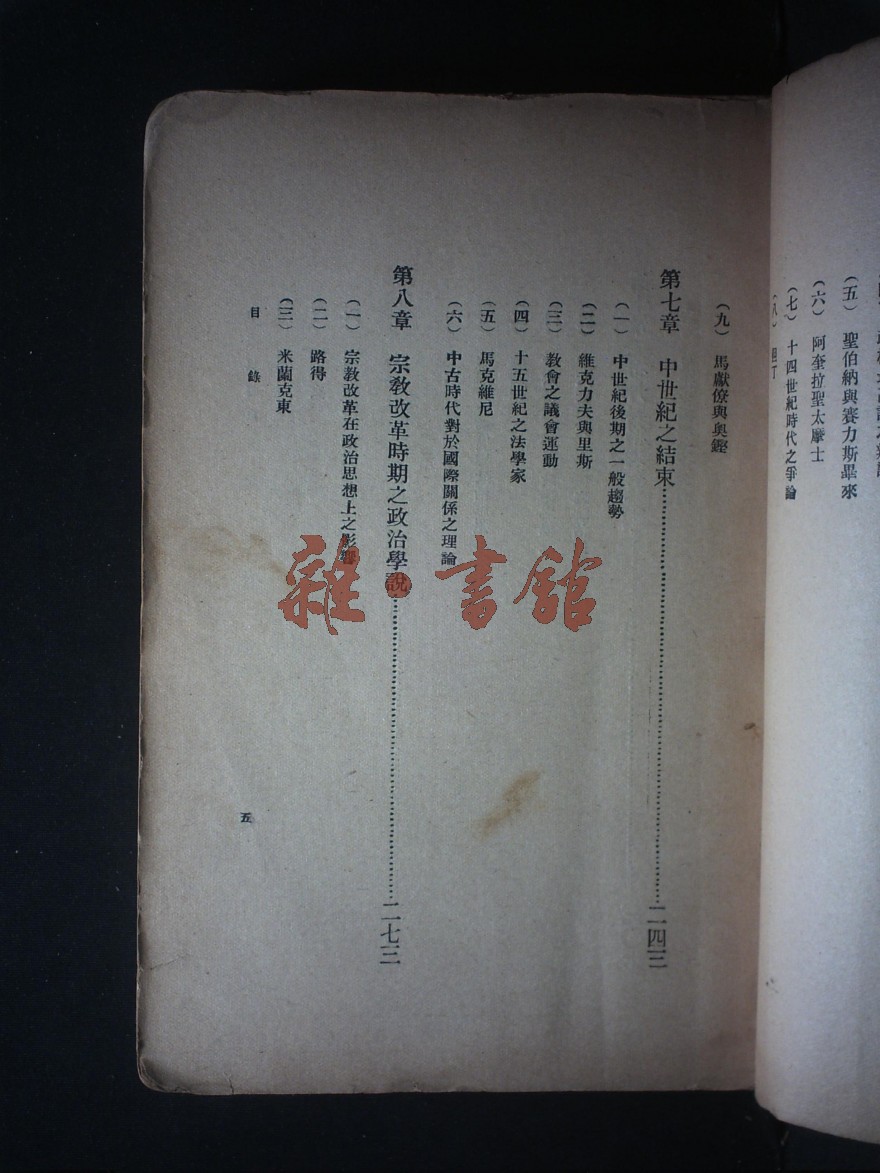 （五）　聖伯納與賽力斯畢來
（六）　阿奎拉聖太摩士
（七）　十四世紀時代之爭論
（九）　馬獻僚與奧鏗
第七章　中世紀之結束…………二四三
（一）　中世紀後期之一般趨勢
（二）　維克力夫與里斯
（三）　教會之議會運動
（四）　十五世紀之法學家
（五）　馬克維尼
（六）　中古時代對於國際關係之理論
第八章　宗教改革時期之政治學說…………二七三
（一）　宗教改革在政治思想上之影響
（二）　路得
（三）　米蘭克東
目　錄
五
雜書館